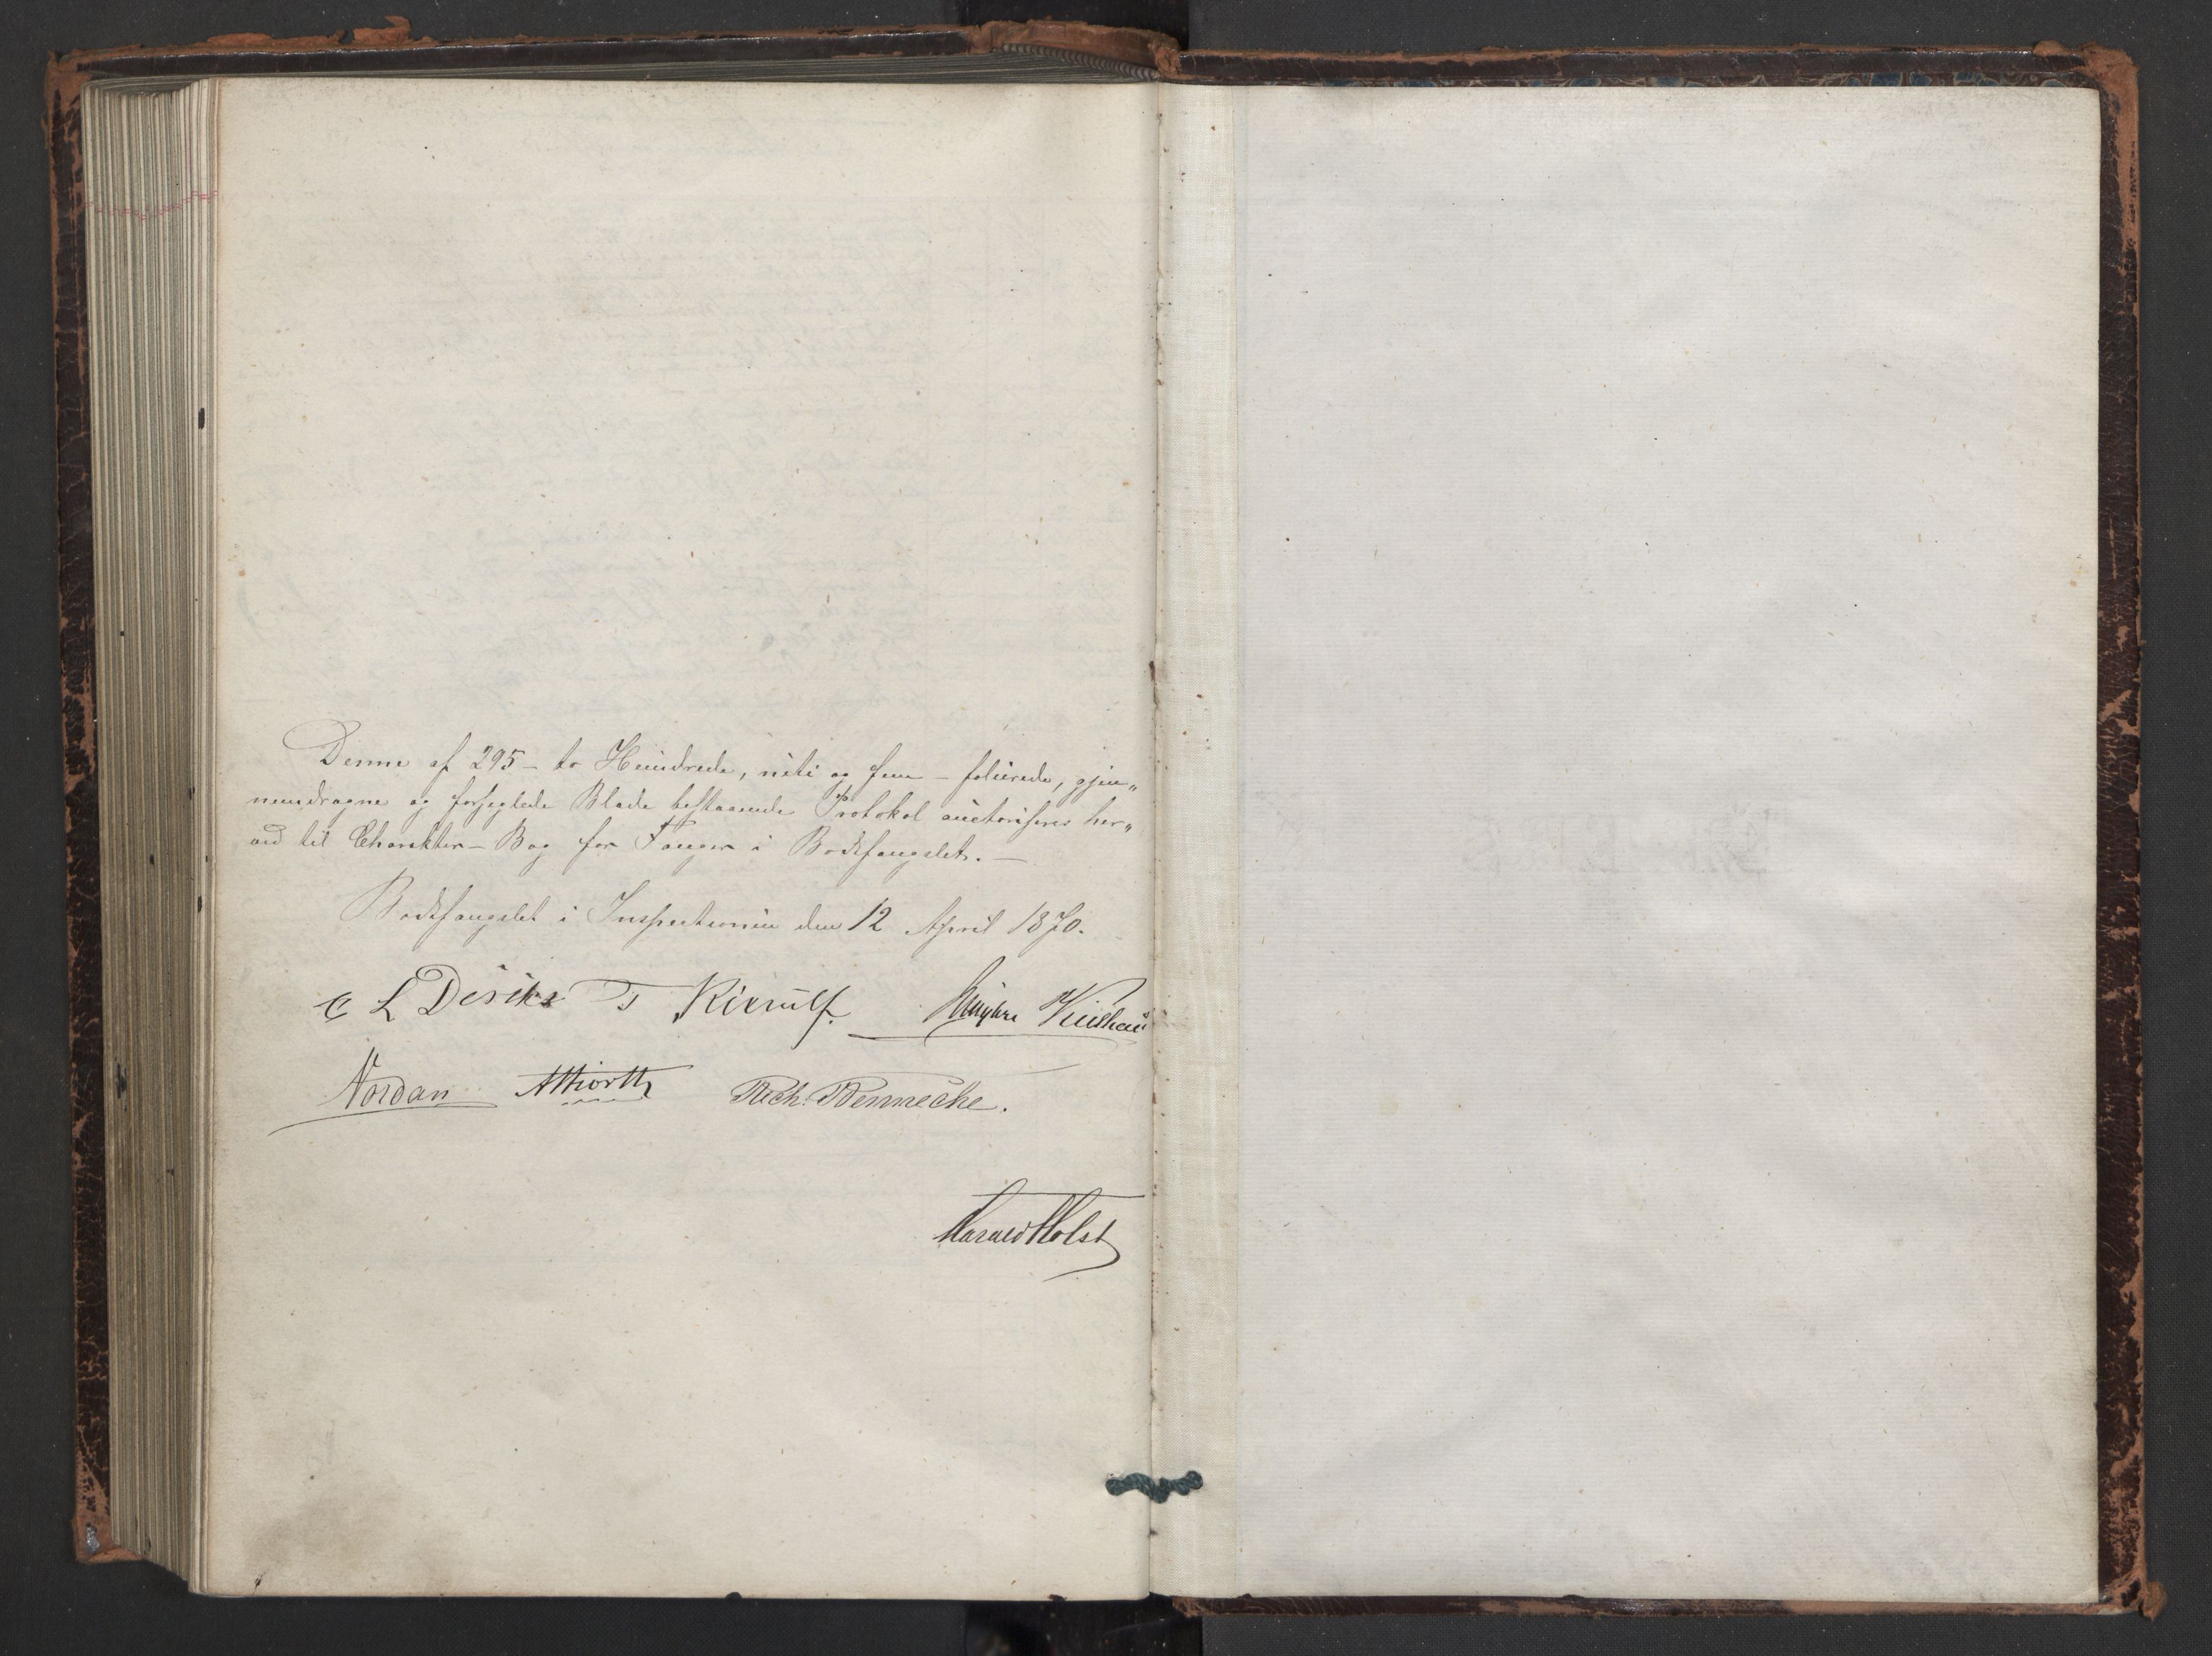 Denne af 295 – to Hundrede, niti og fem – folierede, gjen„
nemdragne og forseglede Blade bestaaende Protokol auctoriseres her„
ved til Charakter-Bog for Fanger i Bodsfængslet. –
Bodsfængslet i Inspectionen den 12 April 1870.
C L Diriks T Kierulf.
Nordan AHiorth Rich. Benneche.
Harald Holst